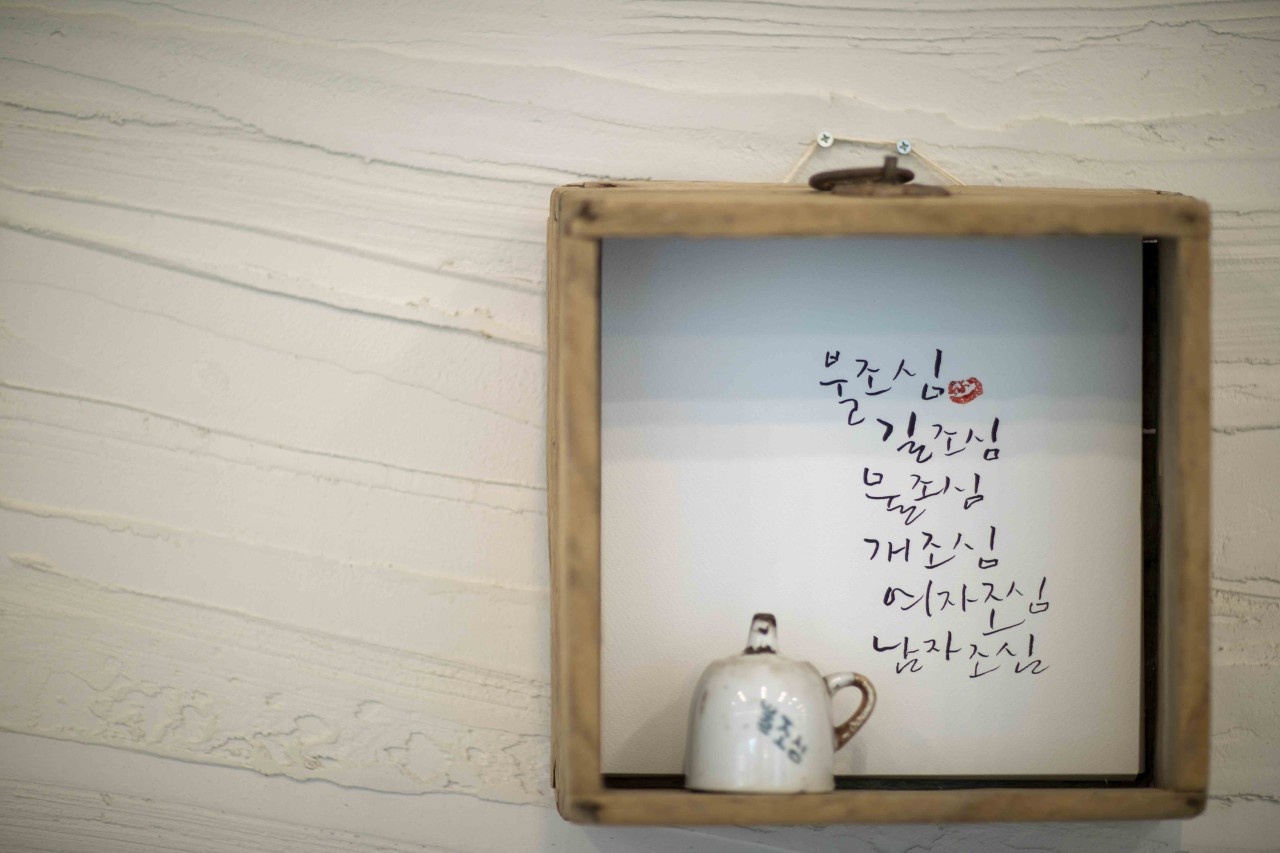 불조심
길조심
물조심
개조심
여자조심
남자조심
불조심